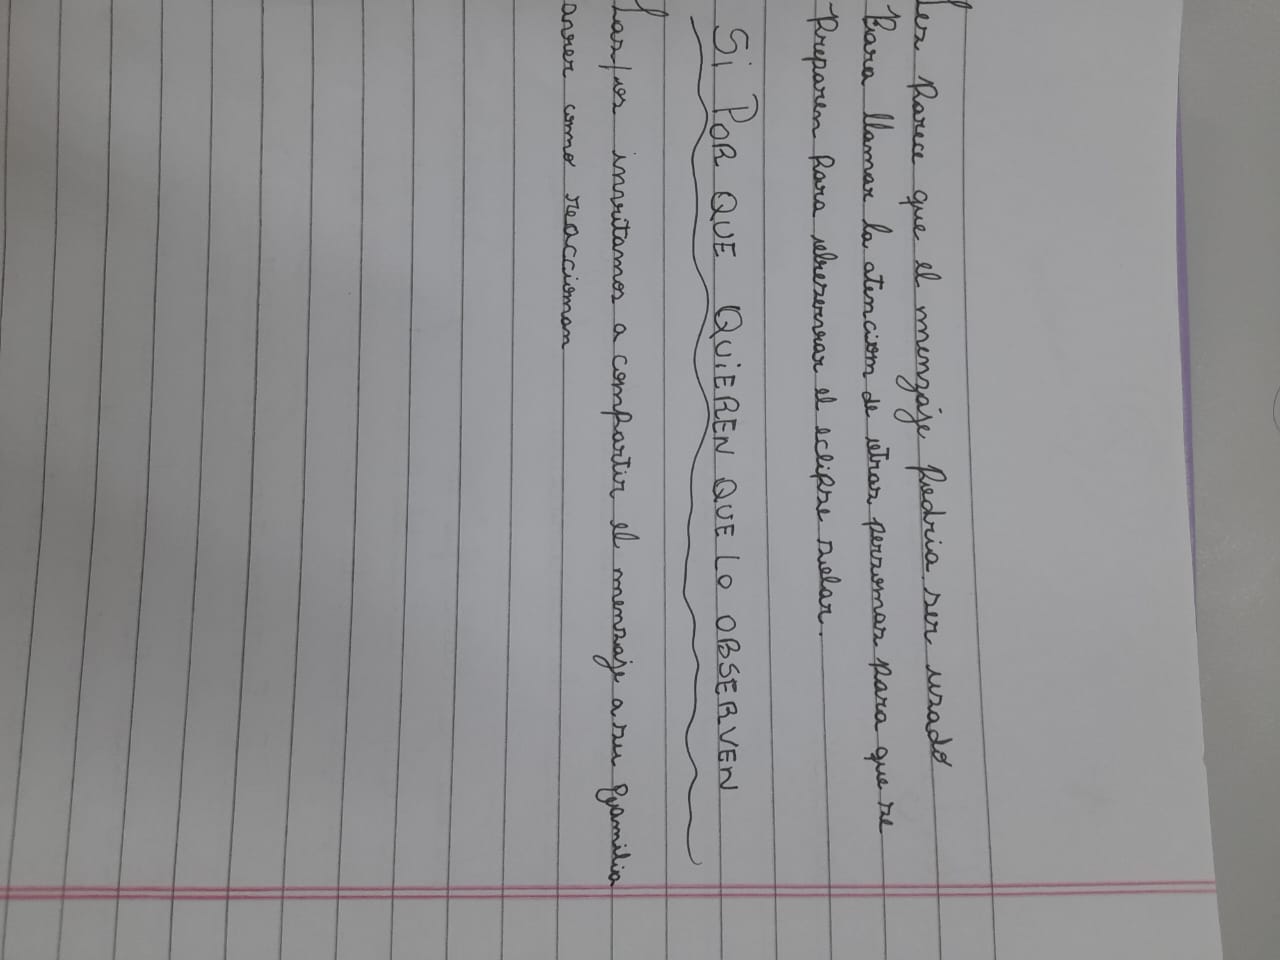 les parece que el menzaje podria ser usado
Para llamar la atencion de otras personas para que se
Preparen para obserervar el eclipse solar.
Si POR QUE QUiEREN QUE LO OBSERVEN
Las/os invitamos a compartir el mensaje a su familia
anrer como reaccionan